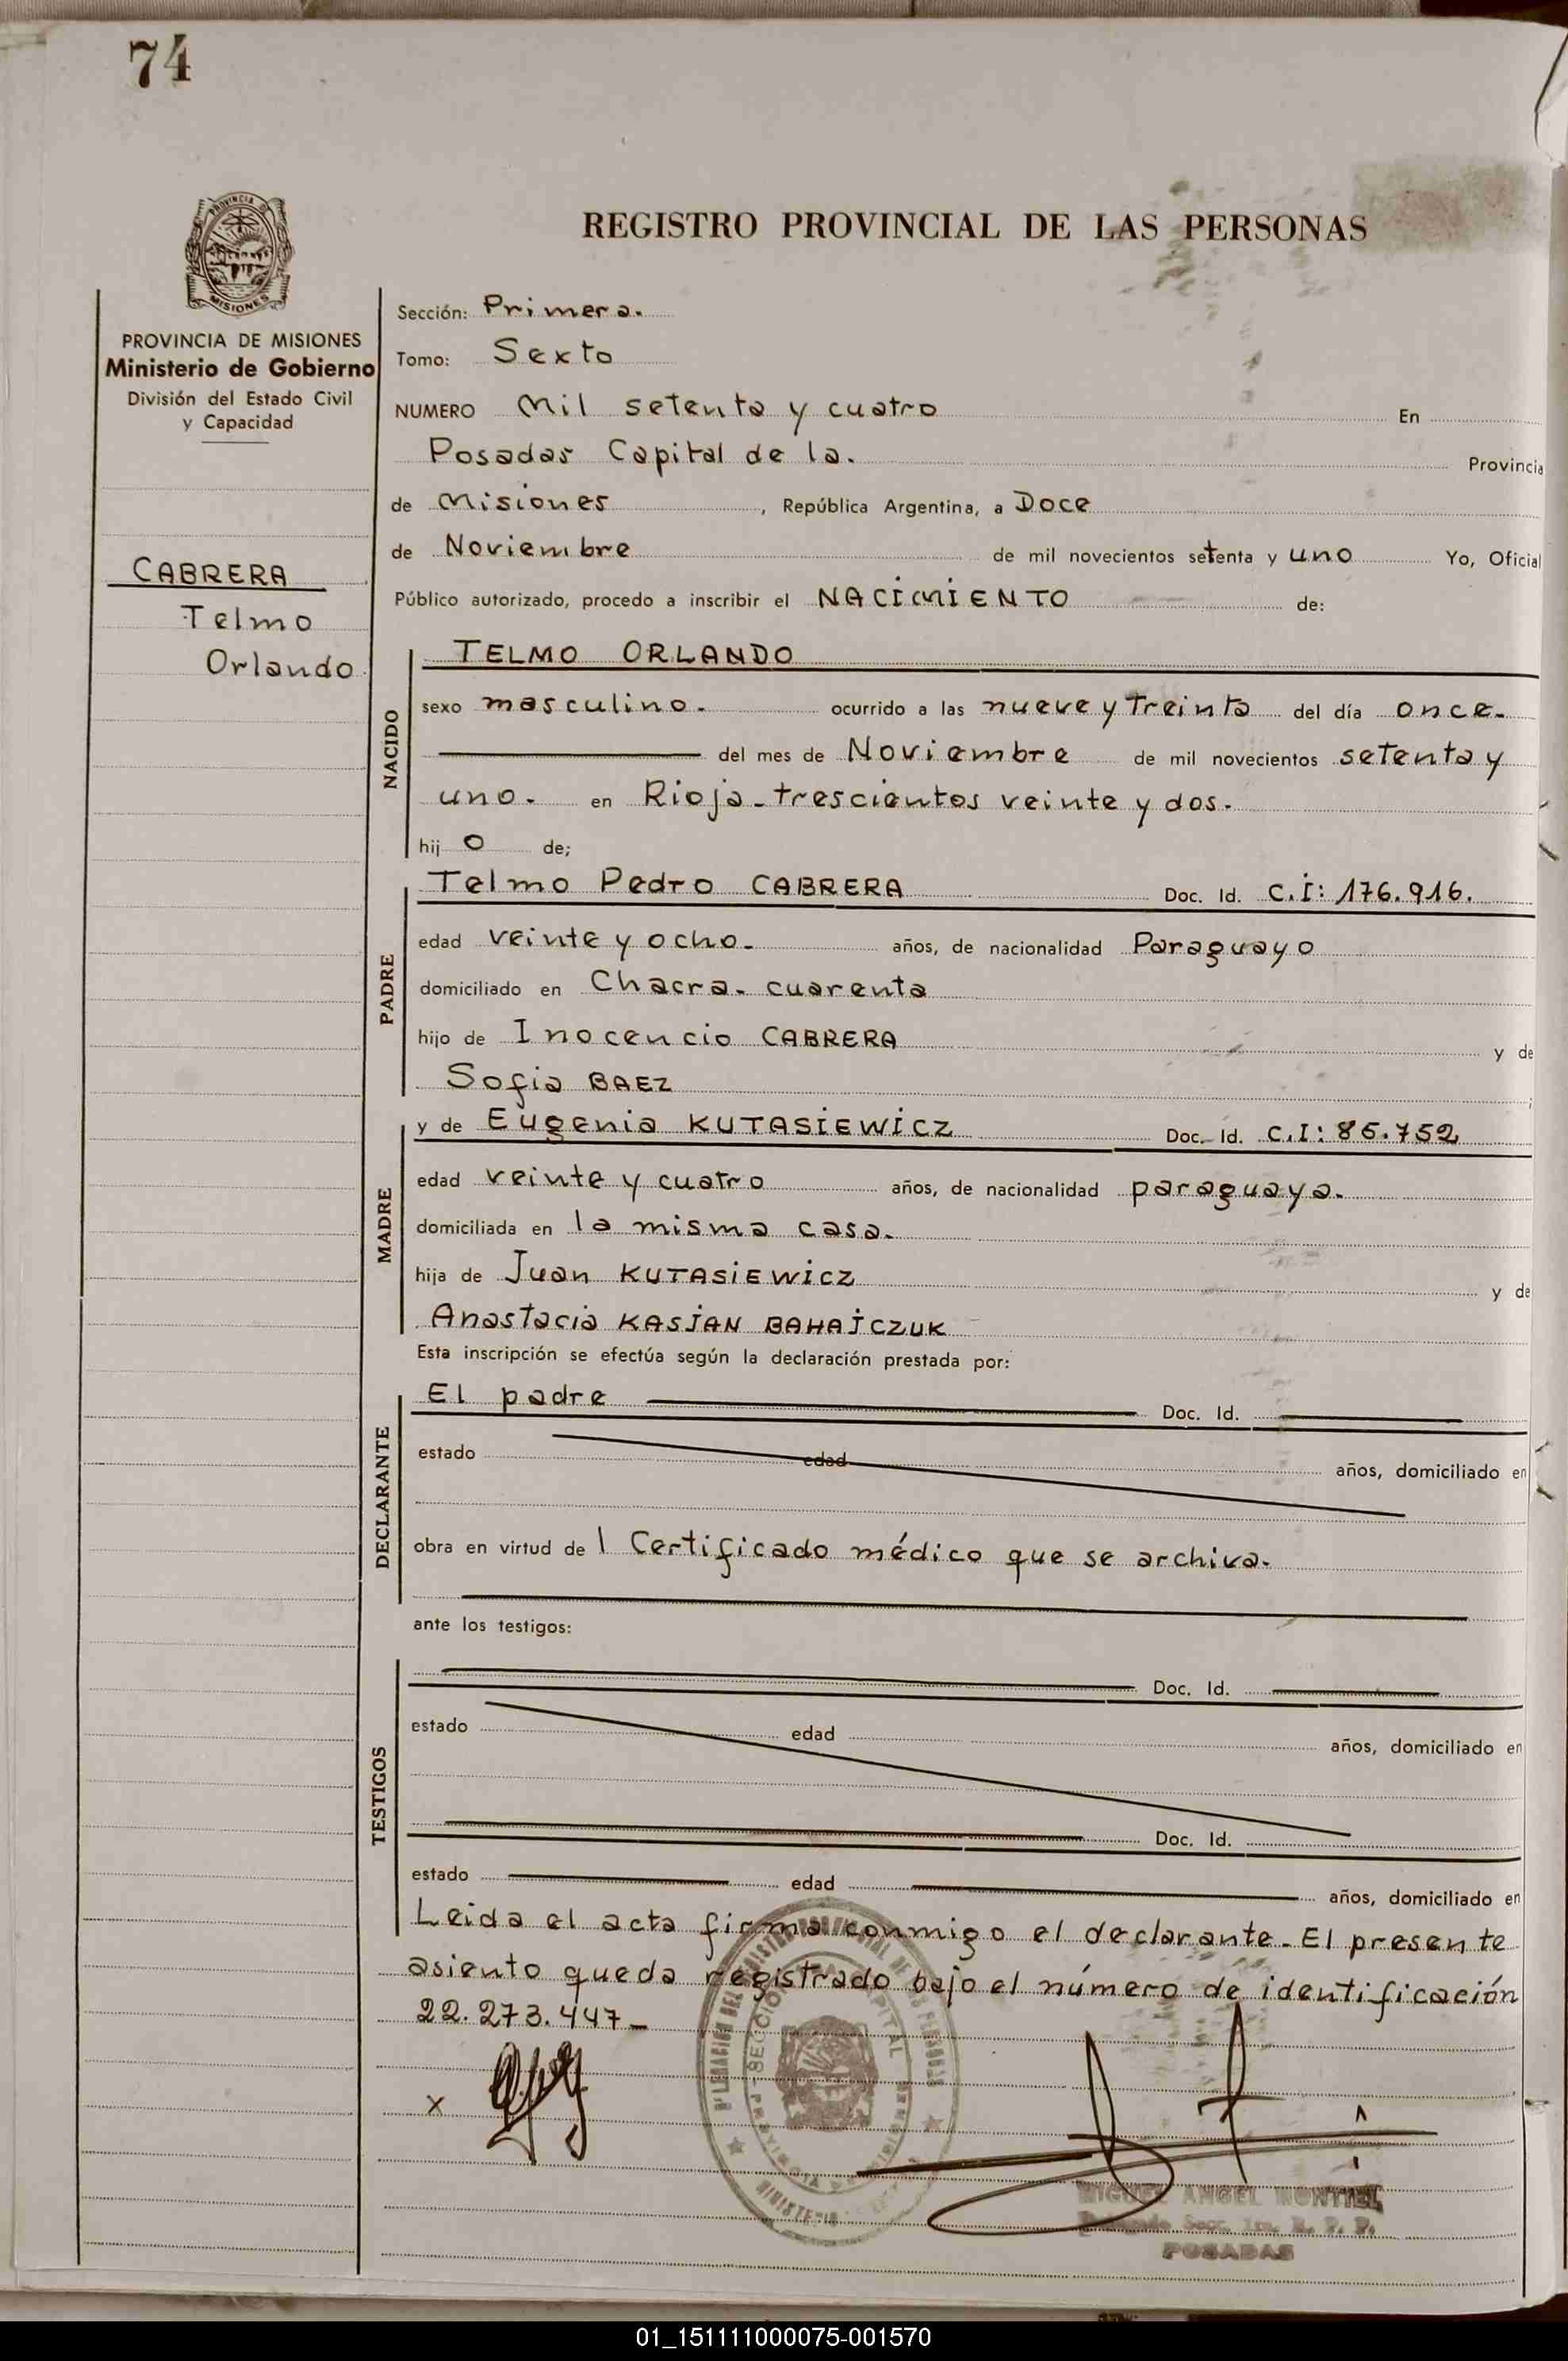 74
PROVINCIA DE
MISIONES
REGISTRO PROVINCIAL DE LAS PERSONAS
PROVINCIA DE MISIONES
Ministerio de Gobierno
División del Estado Civil
y Capacidad
CABRERA
Telmo
Orlando
Sección: Primera.
Tomo: Sexto
NUMERO Mil setenta y cuatro En
Posadas Capital de la. Provincia
de Misiones, República Argentina, a Doce
de Noviembre de mil novecientos setenta y uno Yo, Oficial
Público autorizado, procedo a inscribir el NACIMIENTO de:
NACIDO
TELMO ORLANDO
sexo masculino. ocurrido a las nueve y treinta del día once.
del mes de Noviembre de mil novecientos setenta y
uno. en Rioja-trescientos veinte y dos.
hij o de;
PADRE
Telmo Pedro CABRERA Doc. Id. C.I: 176.916.
edad veinte y ocho. años, de nacionalidad Paraguayo
domiciliado en Chacra. cuarenta
hijo de Inocencio CABRERA y de
Sofia BAEZ
MADRE
y de Eugenia KUTASIEWICZ Doc. Id. C.I: 85.752
edad veinte y cuatro años, de nacionalidad paraguaya.
domiciliada en la misma casa.
hija de Juan KUTASIEWICZ y de
Anastacia KASJAN BAHAJCZUK
Esta inscripción se efectúa según la declaración prestada por:
DECLARANTE
El padre Doc. Id.
estado edad años, domiciliado en
obra en virtud de l Certificado médico que se archiva.
ante los testigos:
TESTIGOS
Doc. Id.
estado edad años, domiciliado en
Doc. Id.
estado edad años, domiciliado en
Leida el acta firma conmigo el declarante. El presente
asiento queda registrado bajo el número de identificación
22.273.447-
x
MIGUEL ANGEL MONTIEL
POSADAS
01_151111000075-001570